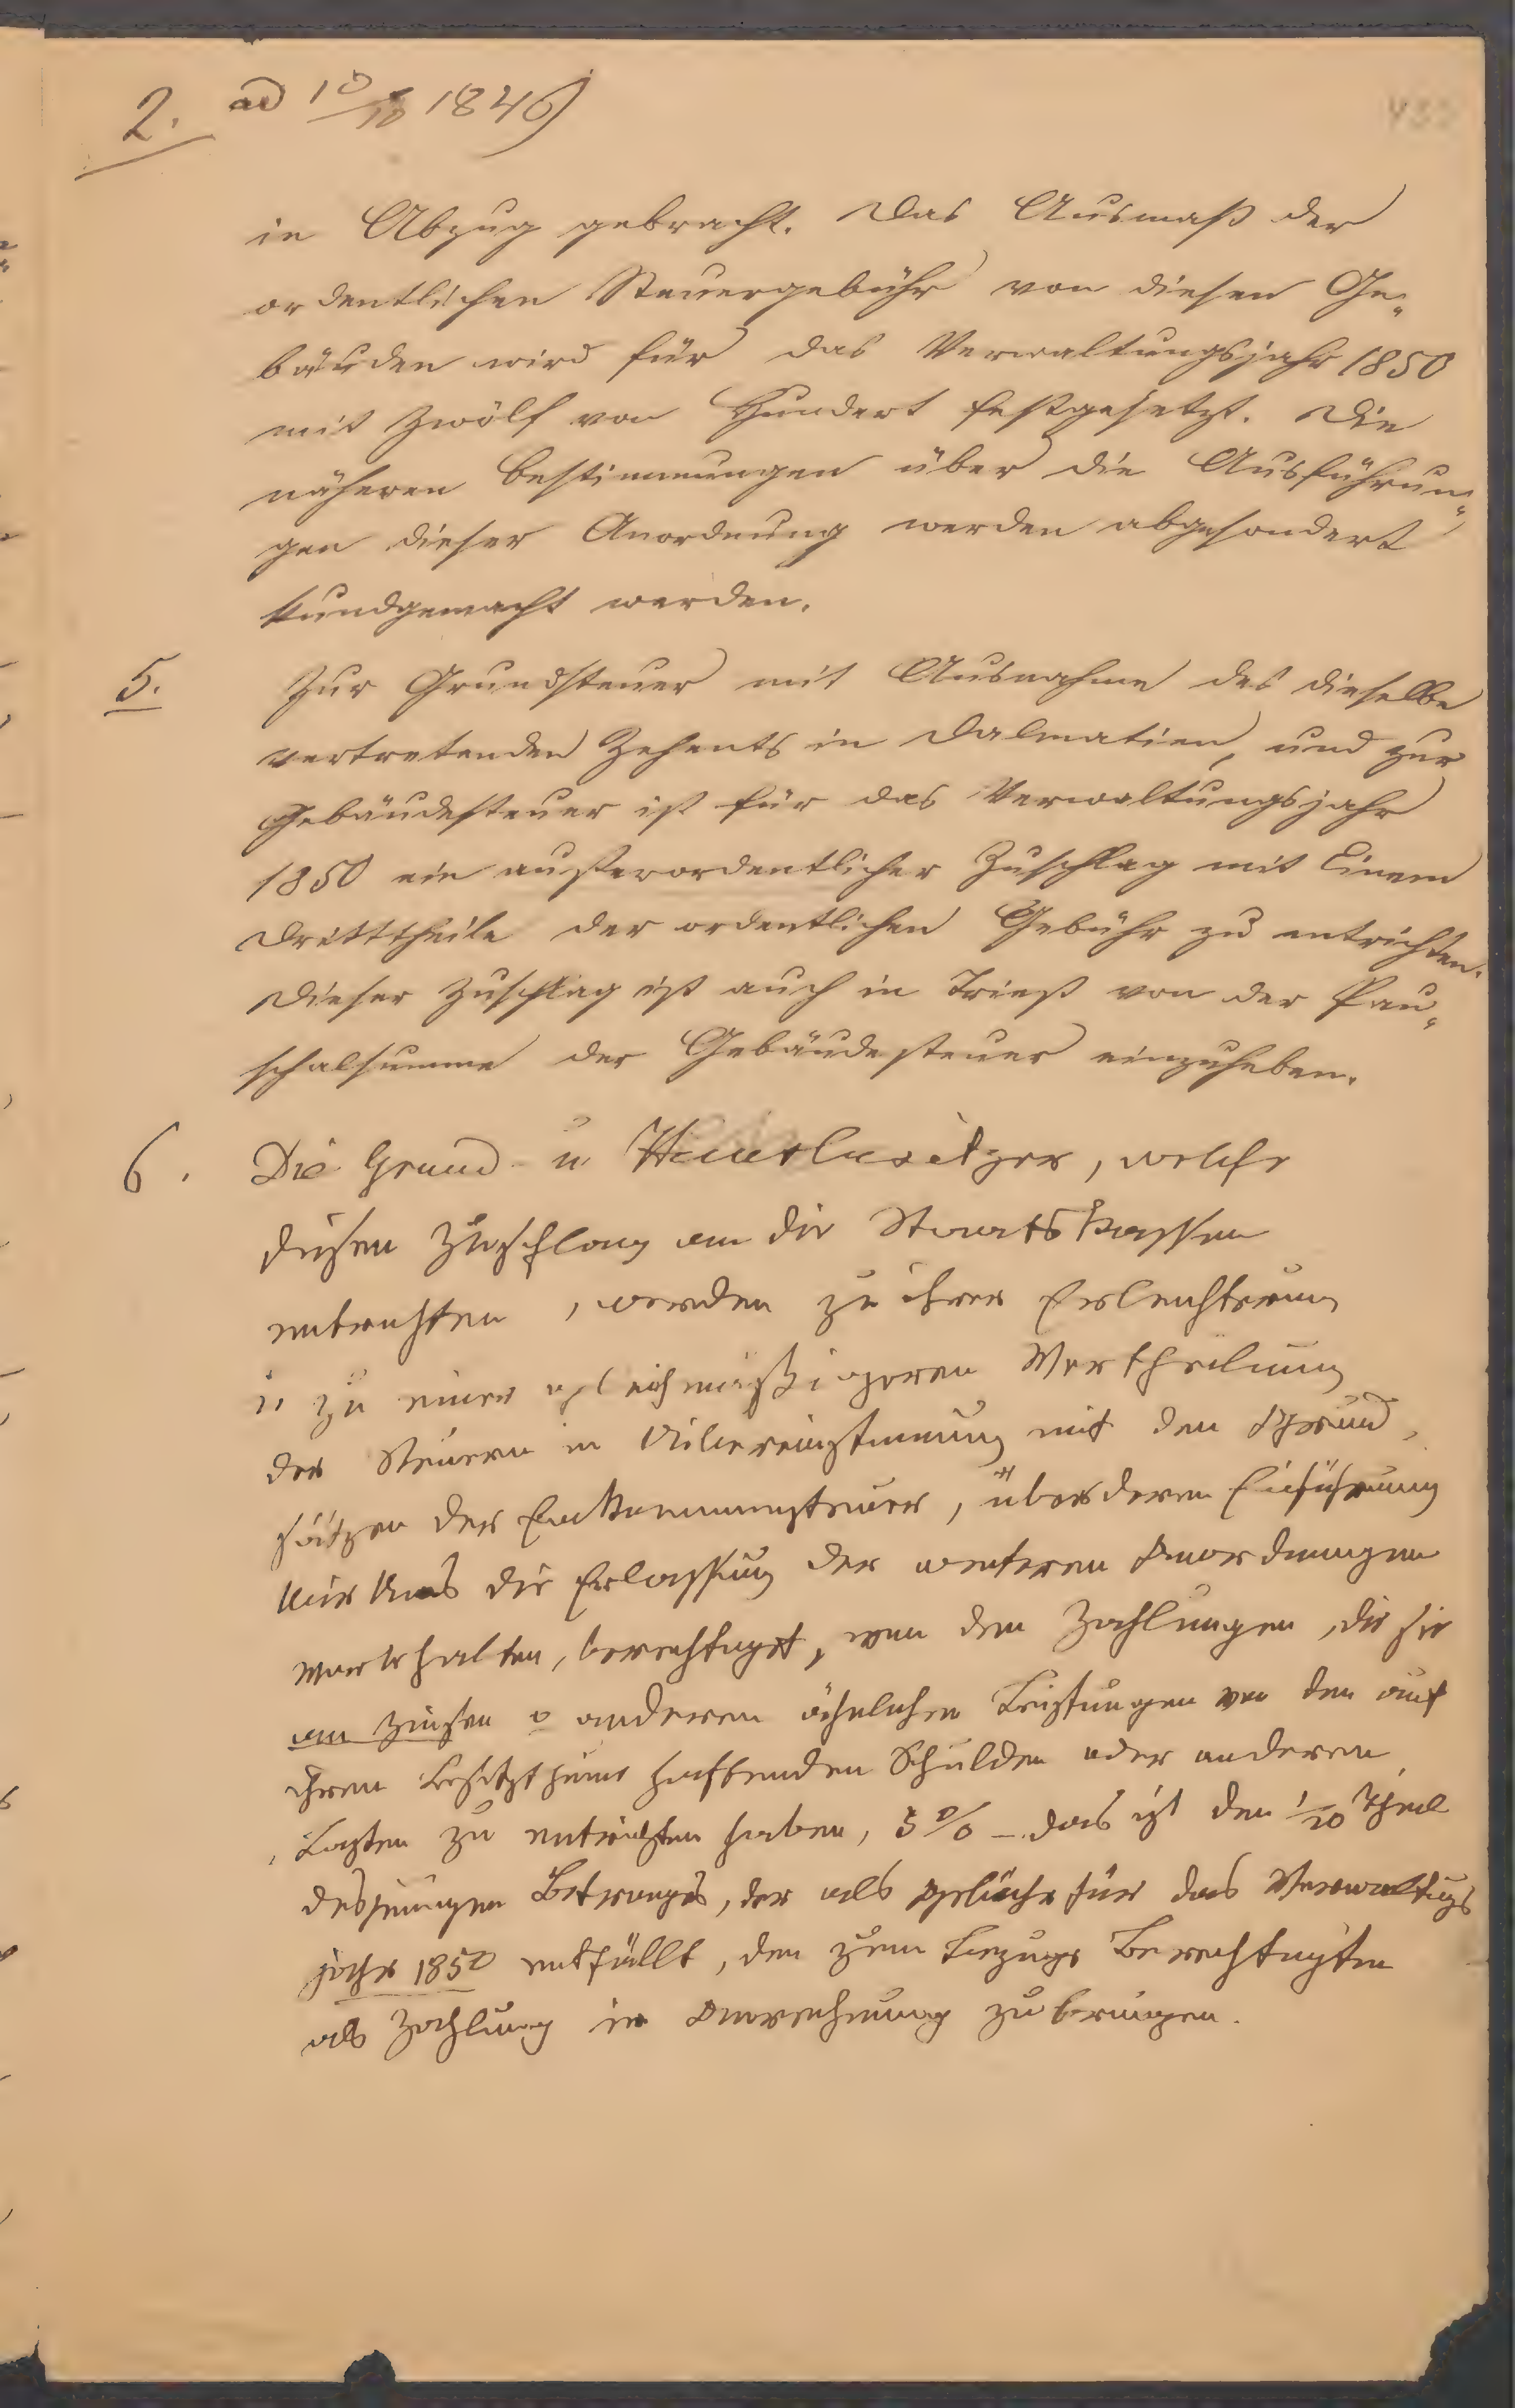 2. ad 10/10 1849
in Abzug gebracht. Das Ausmaß der
ordentlichen Steuergebühr von diesen Ge„
bäuden wird für das Verwaltungsjahr 1850
mit Zwölf von Hundert festgesetzt. Die
näheren Bestimmungen über die Ausführun„
gen dieser Anordnung werden abgesondert
kundgemacht werden.
5. Zur Grundsteuer mit Ausnahme des dieselbe
vertretenden Zehents in Dalmatien, und zur
Gebäudesteuer ist für das Verwaltungsjahr
1850 ein außerordentlicher Zuschlag mit Einem
Dritttheile der ordentlichen Gebühr zu entrichten.
Dieser Zuschlag ist auch in Triest von der Pau„
schalsumme der Gebäudesteuer einzuheben.
6. Die Grund- u Hausbesitzer, welche
diesen Zuschlag an die Staatskassen
entrichten, werden zu ihrer Erleichterung
u zu einer gleichmäßigeren Vertheilung
der Steuern in Uibereinstimmung mit den Grund„
sätzen der Einkommensteuer, über deren Einführung
wir Uns die Erlassung der weiteren Anordnungen
vorbehalten, berechtigt, von den Zahlungen, die sie
an Zinsen o anderen ähnlichen Leistungen von den auf
ihrem Besitzthume haftenden Schulden oder anderen
Lasten zu entrichten haben, 5 % – das ist den 1/20 Theil
desjenigen Betrages, der als Gebühr für das Verwaltugs
jahr 1850 entfällt, den zum Bezuge Berechtigten
als Zahlung in Anrechnung zu bringen.